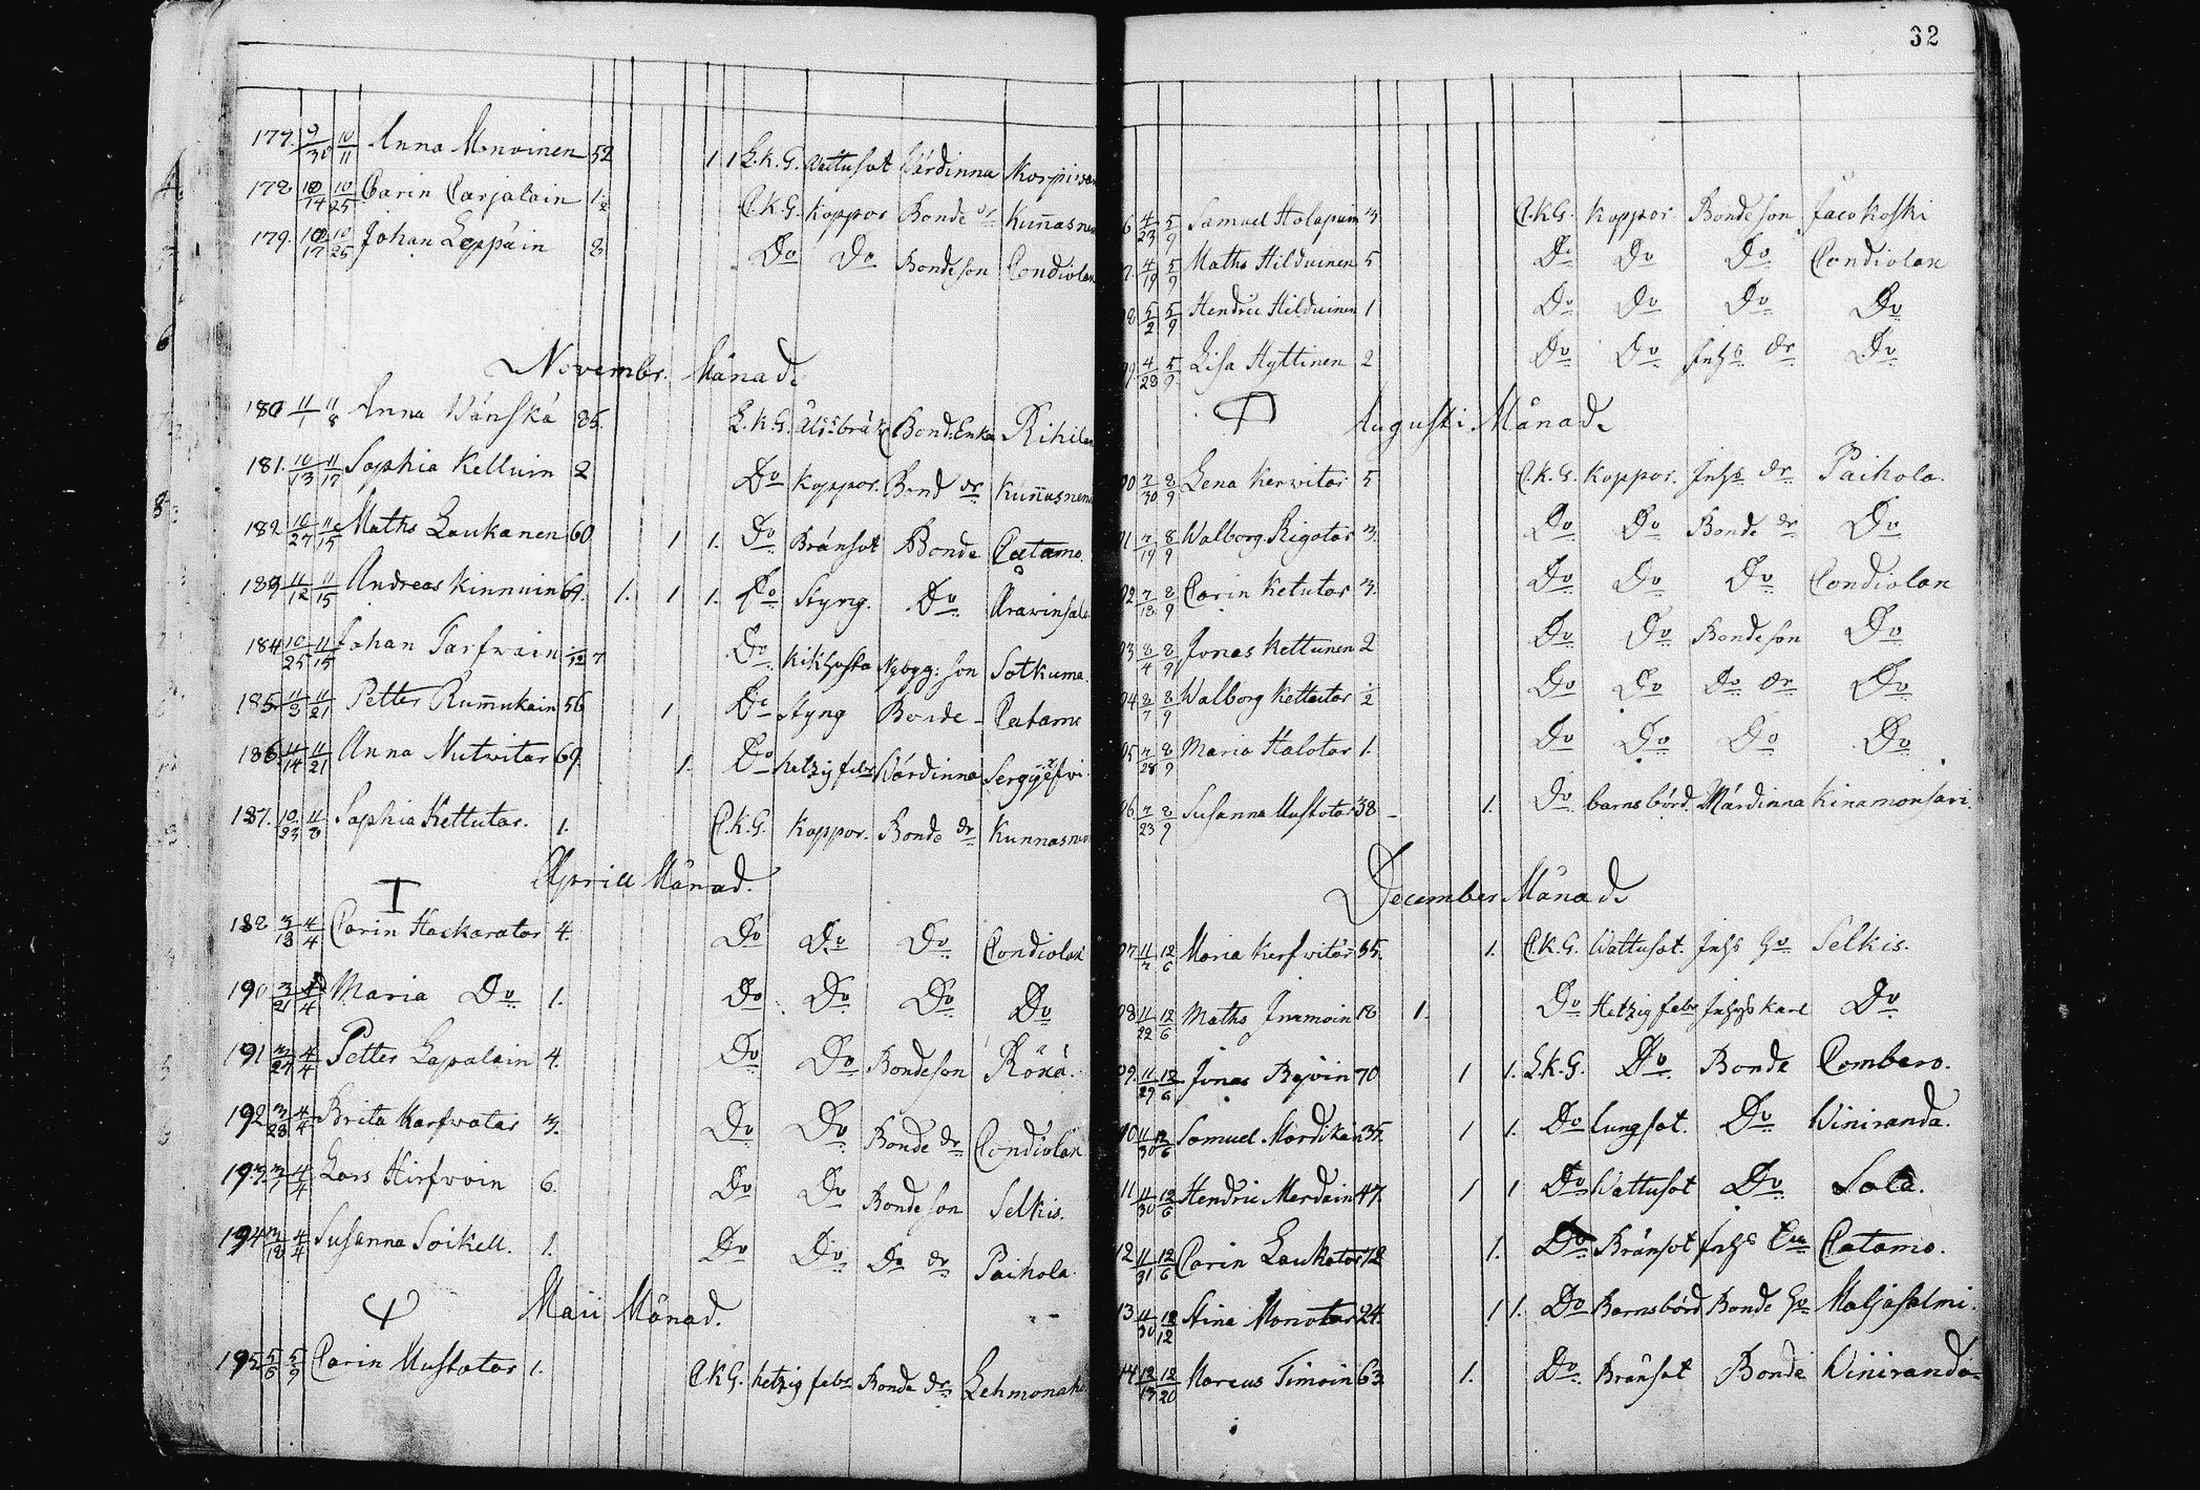 32
177. 9/30 10/11 Anna Monoinen 52 1 1 L.K.G. Wattusot Wärdinna
178 10/14 10/25 Carin Carjalain 1/2 C.K.G. Koppor Bonde dr Kunnasn
179. 10/17 10/25 Johan Leppäin 8 Do Do Bondeson Condiolax
Novembr. Månad.
180 11/1 11/8 Anna Wänskä 85. L.K.G. Bond. Enka Rihila
181. 10/13 11/17 Sophia Kelluin 2 Do Koppor. Bond dr Kunnasnem
182. 10/27 11/15 Maths Laukanen 60 1 1. Do Bränsot Bonde Catamo.
183 11/12 11/15 Andreas Kinnuin 69. 1. 1 1. Do Styng. Do Arawinsal
184 10/25 11/15 Johan Tarfwain 7/12 Do Kikhosta Nybygg: son Sotkuma.
185. 11/3 11/21 Petter Rummukain 56 1 Do Styng Bonde Catamo
186. 11/14 11/21 Anna Nutwitar 69 1. Do hetzig feber Wärdinna
187. 10/23 11/8 Sophia Kettutar. 1. C.K.G. Koppor. Bonde dr Kunnasn
Aprill Månad.
188 3/18 4/4 Carin Hackaratar 4. Do Do Do Condiolax
190 3/21 4/4 Maria Do 1. Do Do Do Do
191 3/27 4/4 Petter Lapalain 4. Do Do Bondeson Röxä.
192 3/28 4/4 Brita Karfwatar 3. Do Do Bonde dr Condiolax
193. 4/4 Lars Hirfwoin 6. Do Do Bondeson Selkis.
194 3/18 4/4 Susanna Soikell. 1. Do Do Do dr Paihola
Maii Månad.
195 5/6 5/9 Carin Mustatar 1. C.K.G. hetzig feber Bonde dr Lehmonah
6 4/23 5/9 Samuel Holapain 3 C.K.G. Koppor. Bondeson Jacokoski
4/19 5/9 Maths Hilduinen 5 Do Do Do Condiolax
8 5/2 5/9 Hendric Hilduinen 1 Do Do Do Do
9 4/28 5/9 Lisa Hyttinen 2 Do Do Inhs dr Do
Augusti Månad.
00 7/30 8/9 Lena Kerwitar 5 C.K.G. Koppor. Inhs dr Paihola.
01 7/19 8/9 Walborg Rigotar 3. Do Do Bonde dr Do
02 7/18 8/9 Carin Ketutar 3. Do Do Do Condiolax
03 8/4 8/9 Jonas Kettunen 2 Do Do Bondeson Do
04 8/7 8/9 Walborg Kettutar 1/2 Do Do Do dr Do
05 7/28 8/9 Maria Halotar 1. Do Do Do Do
06. 7/23 8/9 Susanna Mustotar 38 1. Do barnsbörd. Wärdinna Kinamonsari.
December Månad.
07 11/7 12/6 Maria Kerfwitar 35. 1. C.K.G. Wattusot. Inhs Hu Selkis.
08 11/22 12/6 Maths Immoin 18 1. Do Hetzig feber Inhys karl Do
09. 11/29 12/6 Jonas Rejoin 70 1 1. L.K.G. Do Bonde Combero.
10 11/30 12/6 Samuel Mardikäin 35. 1 1. Do Lungsot. Do Winiranda.
11 11/30 12/6 Hendric Merdäin 47. 1 1 Do Wattusot Do Sola.
12 11/31 12/6 Carin Laukatar 72 1. Do Bränsot Inhs Catamo.
13 11/30 12/12 Stina Monotar 24. 1 1. Do Barnsbörd Bonde Hu Maljasalmi.
14 12/13 12/20 Marcus Timoin 63 1. Do Bränsot Bonde Winiranda